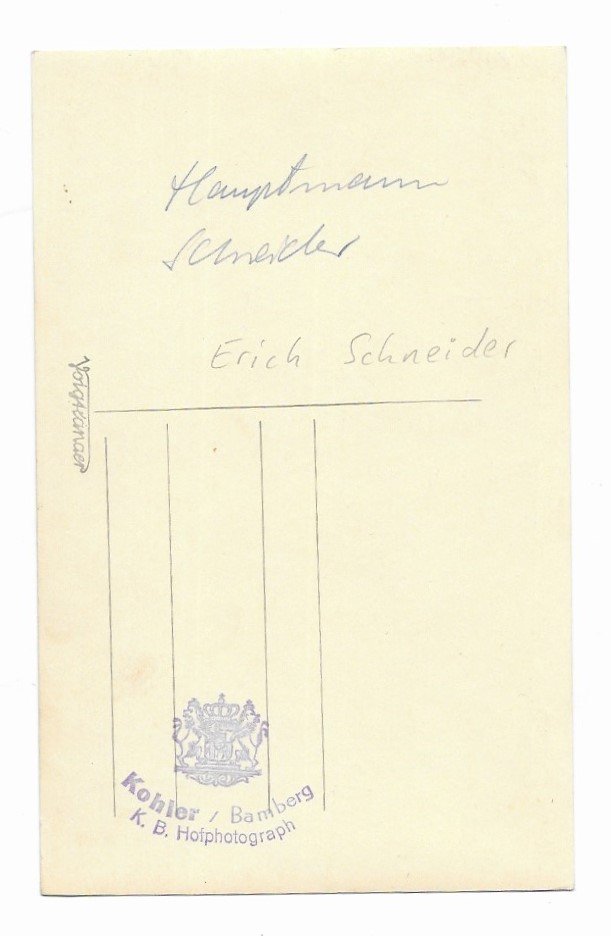 Hauptmann
Schneider
Erich Schneider
Voigtländer
Kohler / Bamberg
K. B. Hofphotograph